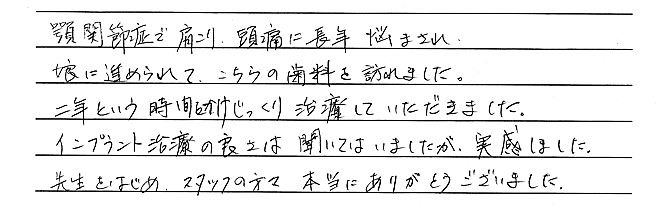 顎関節症で肩こり、頭痛に長年 悩まされ、
娘に進められて、こちらの歯科を訪れました。
二年という時間をかけじっくり治療していただきました。
インプラント治療の良さは聞いてはいましたが、実感しました。
先生をはじめ、スタッフの方々 本当にありがとうございました。